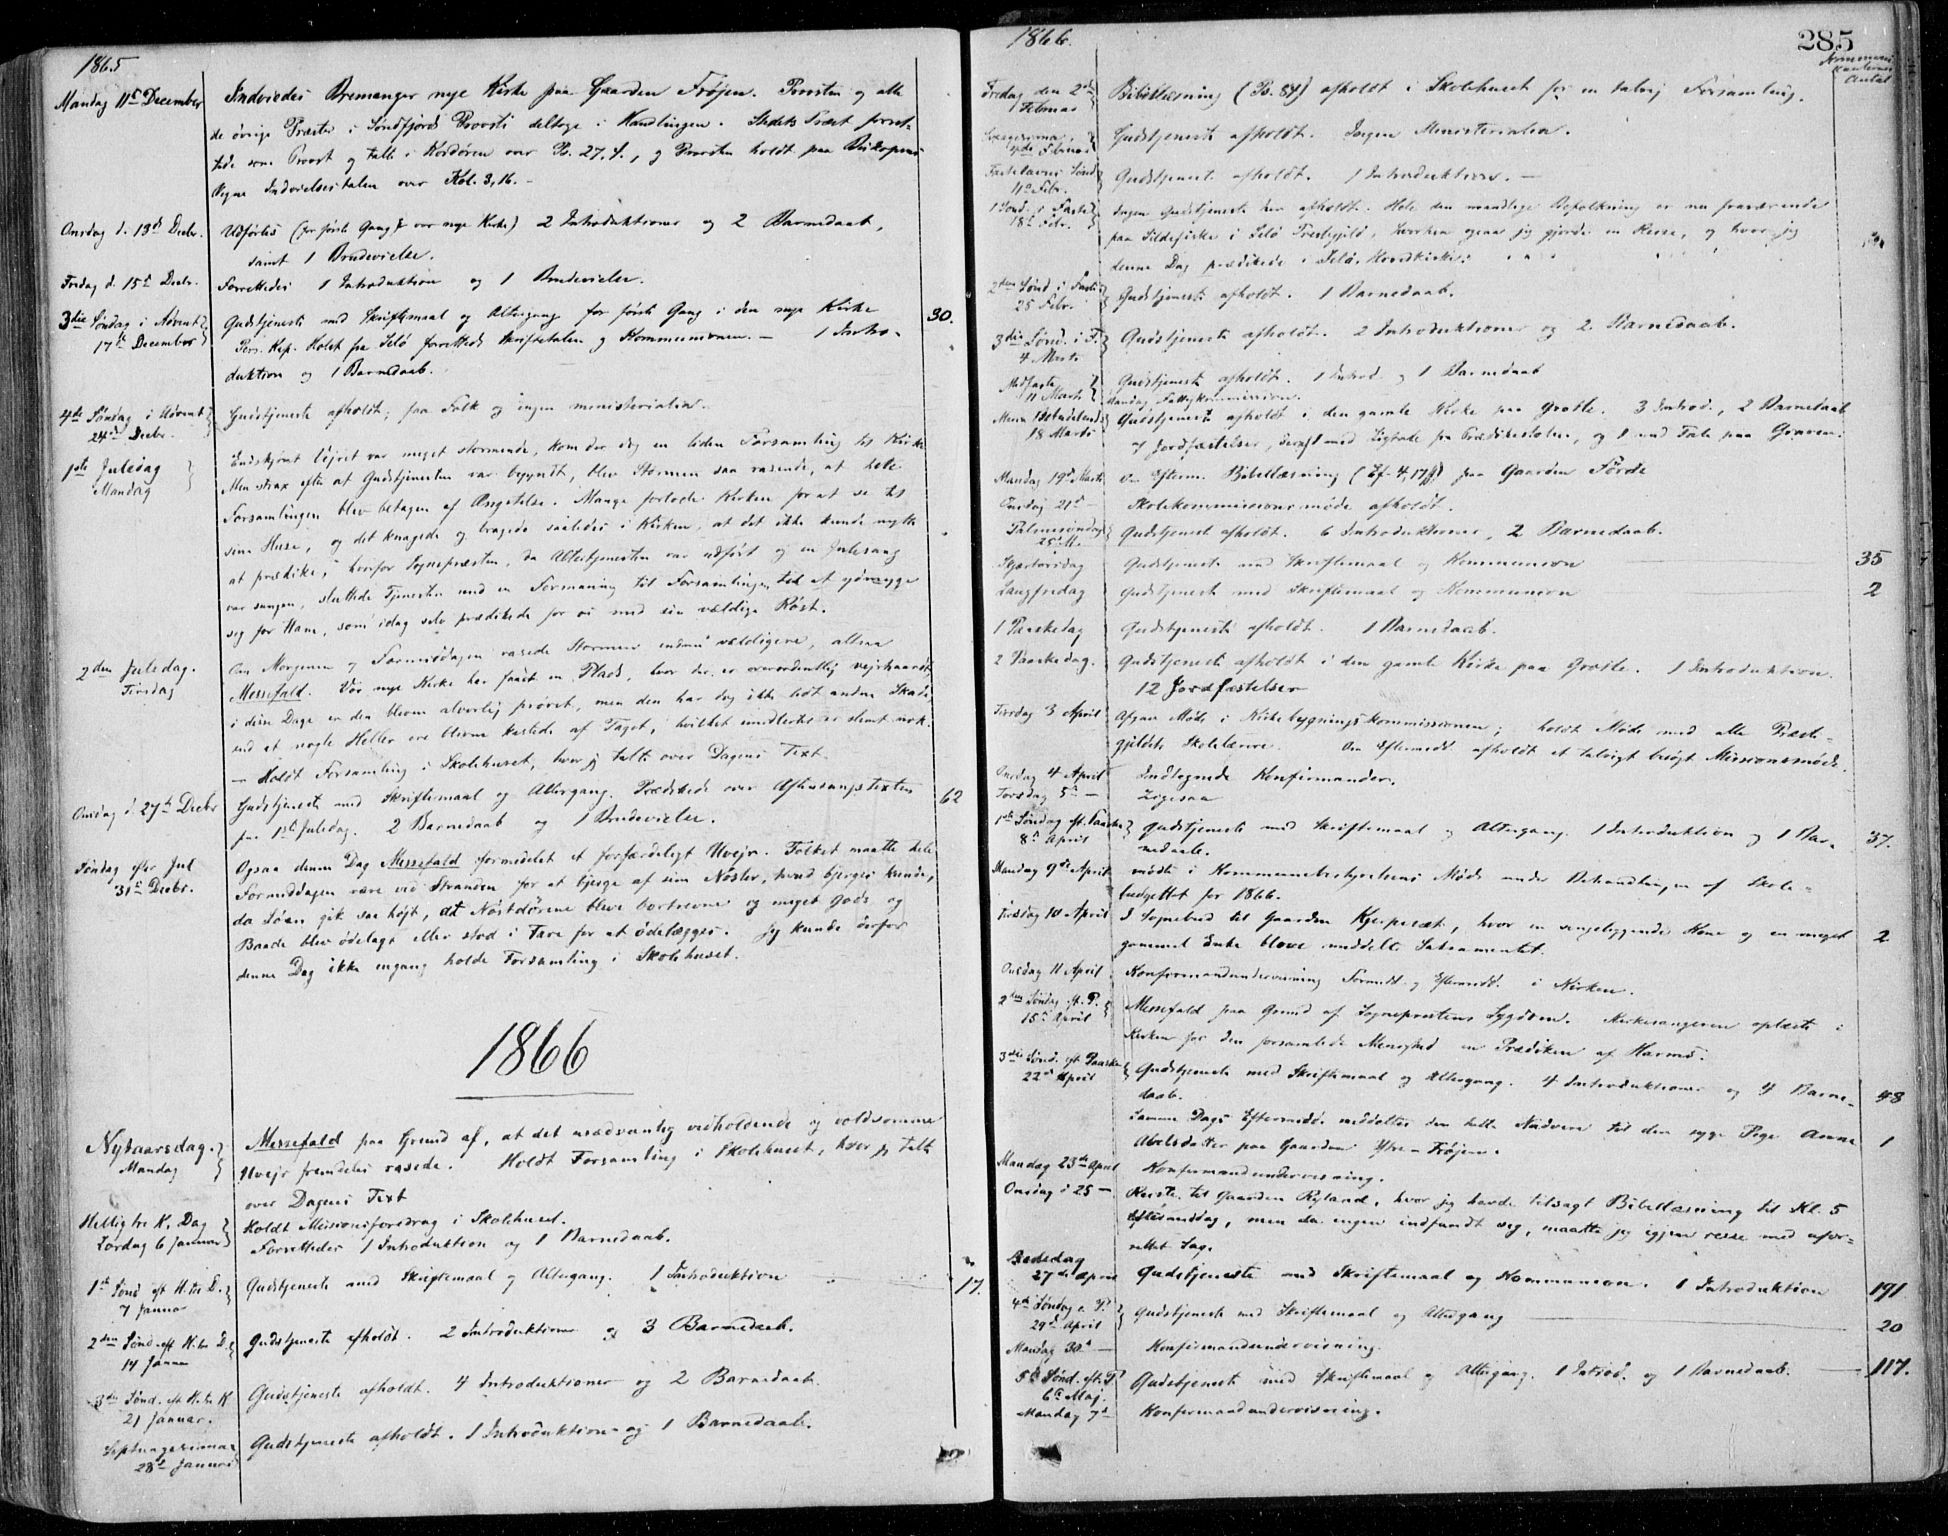 1865
Mandag 11te December Indviedes Bremanger nye Kirke paa Gaarden Frøjen. Provsten og alle
de øvrige Præster i Søndfjords Provsti deltoge i Handlingen. Stedets Præst forret-
tede som Provst og talte i Kordøren over Ps. 27,4, og Provsten holdt paa Biskopens
Vegne Indvielsestalen over Kol. 3,16. -
Onsdag d. 13de Decbr. Udførtes (for første Gang i vor nye Kirke) 2 Introduktioner og 2 Barnedaab,
samt 1 Brudevielse.
Fredag d. 15de Decbr. Forrettedes 1 Introduktion og 1 Brudevielse.
3die Søndag i Advent Gudstjeneste med Skriftemaal og Altergang for første Gang i den nye Kirke 30.
17de December Pers. Kap. Holst fra Selø forrettede Skriftetalen og Kommunionen. - 1 Intro-
duktion og 1 Barnedaab.
4de Søndag i Advent Gudstjeneste afholdt; faa Folk og ingen ministerialia.
24de Decbr.
1ste Juledag Endskjønt Vejret var meget stormende, kom der dog en liden Forsamling til Kirke
Mandag Men strax efter at Gudstjenesten var begyndt, blev Stormen saa rasende, at hele
Forsamlingen blev betagen af Ængstelse. Mange forlode Kirken for at se til
sine Huse, og det knagede og bragede saaledes i Kirken, at det ikke kunde nytte
at prædike, hvorfor Sognepræsten, da Altertjenesten var udført og en Julesang
var sungen, sluttede Tjenesten med en Formaning til Forsamlingen til at ydmyge
seg for Ham, som idag selv prædikede for os med sin vældige Røst.
2den Juledag. Om Morgenen og Formiddagen rasede Stormen endnu vældigere, altsaa
Tirsdag Messefald. Vor nye Kirke har faaet en Plads, hvor der er overordentlig vejrhaardt,
i disse Dage er den bleven alvorlig prøvet, men den har dog ikke lidt anden Skade,
end at nogle Heller ere blevne kastede af Taget, hvilket imidlertid er slemt nok.
- Holdt Forsamling i Skolehuset, hvor jeg talte over Dagens Text.
Onsdag d. 27de Decbr Gudstjeneste med Skriftemaal og Altergang. Prædikede over Aftensangstexten 62
paa 1ste Juledag. 2 Barnedaab og 1 Brudevielse.
Søndag efter Jul Ogsaa denne Dag Messefald formedelst et forfærdeligt Uvejr. Folket maatte hele
31te Decbr. Formiddagen være ved Stranden for at bjerge af sine Nøster, hvad bjerges kunde,
da Søen gik saa højt, at Nøstdørene bleve bortrevne og meget Gods og
Baade blev ødelagt eller stod i Fare for at ødelægges. Jeg kunde derfor
denne Dag ikke engang holde Forsamling i Skolehuset.
1866
Nytaarsdag. Messefald paa Grund af, at det usædvanlig vedholdende og voldsomme
Mandag Uvejr fremdeles rasede. Holdt Forsamling i Skolehuset, hvor jeg talte
over Dagens Text
Hellig tre K. Dag Holdt Missionsforedrag i Skolehuset.
Lørdag 6 Januar Forrettedes 1 Introduktion og 1 Barnedaab.
1ste Sønd eft H. tre D. Gudstjeneste med Skriftemaal og Altergang. 1 Introduktion 17.
7 Januar
2den Sønd. eft H. tre D. Gudstjeneste afholdt. 2 Introduktioner og 3 Barnedaab.
14 Januar
3die Sønd. eft H. tre K Gudstjeneste afholdt. 4 Introduktioner og 2 Barnedaab.
21 Januar.
Septuagesima Gudstjeneste afholdt. 1 Introduktion og 1 Barnedaab.
28de Januar
1866. 285
Kommuni
kanternes
Antal
Fredag den 2den Bibellæsning (Ps. 84) afholdt i Skolehuset for en talrig Forsamling.
Februar
Gudstjeneste afholdt. Ingen Ministerialia.
4de Februar
Fastelavns Sønd Gudstjeneste afholdt. 1 Introduktion. -
11te Febr.
1 Sønd. i Faste Ingen Gudstjeneste her afholdt. Hele den mandlige Befolkning er nu fraværende
18de Febr. paa Sildefiske i Selø Prestegjeld, hvorhen ogsaa jeg gjorde en Reise, og hvor jeg
denne Dag prædikede i Selø Hovedkirke.
2den Sønd i Faste Gudstjeneste afholdt. 1 Barnedaab.
25 Febr.
3die Sønd. i F. Gudstjeneste afholdt. 2 Introduktioner og 2 Barnedaab.
4 Marts
Midfaste Gudstjeneste afholdt. 1 Introd. og 1 Barnedaab
11 Marts Mandag, Fattigkommission.
Maria Bebudelsesd Gudstjeneste afholdt i den gamle Kirke paa Grotle. 3 Introd., 2 Barnedaab
18 Marts 7 Jordfæstelser, deraf 1 med Ligtale fra Prædikestolen, og 1 med Tale paa Graven.
Mandag 19de Marts Om Efterm. Bibellæsning (Ef. 4,17ff) paa Gaarden Førde
Onsdag 21de - Skolekommissionsmøde afholdt.
Palmesøndag Gudstjeneste afholdt. 6 Introduktioner, 2 Barnedaab.
25de M.
Skjærtorsdag Gudstjeneste med Skriftemaal og Kommunion 35
Langfredag Gudstjeneste med Skriftemaal og Kommunion 2
1 Paaskedag Gudstjeneste afholdt. 1 Barnedaab.
2 Paaskedag. Gudstjeneste afholdt i den gamle Kirke paa Grotle. 1 Introduktion.
12 Jordfæstelser
Tirsdag 3 April Afgav Møde i Kirkebygningskommissionen; holdt Møde med alle Præste-
gjeldets Skolelærere. Om Eftermidd. afholdt et talrigt besøgt Missionsmøde.
Onsdag 4 April Indtegnede Konfirmander.
Torsdag 5te - Ligesaa
1ste Søndag eft. Paaske Gudstjeneste med Skriftemaal og Altergang. 1 Introduktion og 1 Bar- 37.
8de April nedaab.
Mandag 9de April mødte i Kommunebestyrelsens Møde under Behandlingen af Skole-
budgettet for 1866.
Tirsdag 10 April I Sognebud til Gaarden Kjerpesæt, hvor en sengeliggende Kone og en meget 2
gammel Enke bleve meddelte Sakramentet.
Onsdag 11 April Konfirmandundervisning Formidd. og Eftermidd. i Kirken.
2den Søndag eft. P. Messefald paa Grund af Sognepræstens Sygdom. Kirkesangeren oplæste i
15de April Kirken for den forsamlede Menighed en Prædiken af Harms.
3die Sønd. eft Paaske Gudstjeneste med Skriftemaal og Altergang. 4 Introduktioner og 4 Barne- 48
22de April daab.
Samme Dags Eftermidd. meddeltes den hellige Nadvere til den syge Pige Anne 1
Abelsdatter paa Gaarden Ytre-Frøjen.
Mandag 23de April Konfirmandundervisning.
Onsdag d 25 - Reiste til Gaarden Ryland, hvor jeg havde tilsagt Bibellæsning til Kl. 5
Eftermiddag, men da ingen indfandt seg, maatte jeg igjen reise med ufor-
rettet Sag.
Bededag
27de April Gudstjeneste med Skriftemaal og Kommunion. 1 Introduktion 191
4de Søndag e. P. Gudstjeneste med Skriftemaal og Altergang 20
29de April
Mandag 30te - Konfirmandundervisning.
5te Sønd. eft. P Gudstjeneste med Skriftemaal og Altergang. 1 Introd. og 1 Barnedaab. 117.
6te Maj.
Mandag 7de Konfirmandundervisning.